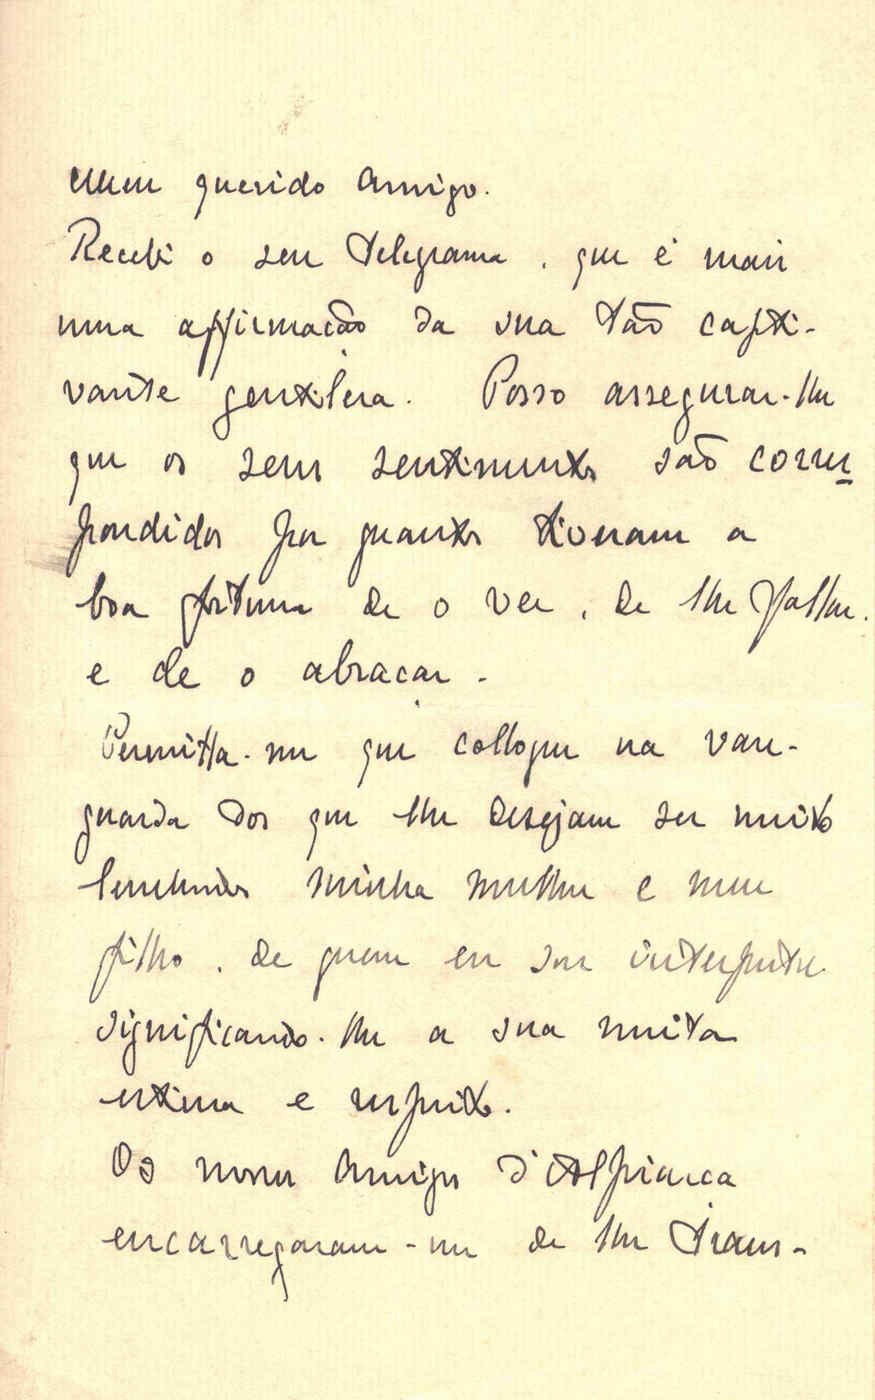 Meu querido Amigo.
Recebi o seu telegrama, que é mais
uma affirmação da sua tão capti-
vante gentileza. Posso assegurar-lhe
que os seus sentimentos são corres
pondidos por quantos tiveram a
boa fortuna de o ver, de lhe fallar,
e de o abraçar.
Permitta-me que colloque na van-
guarda dos que lhe desejam ser muito
lembrados minha mulher e meu
filho, de quem eu sou interprete
significando-lhe a sua muita
estima e respeito.
Os nossos Amigos d'Alpiarça
encarregaram-me de lhe trans-